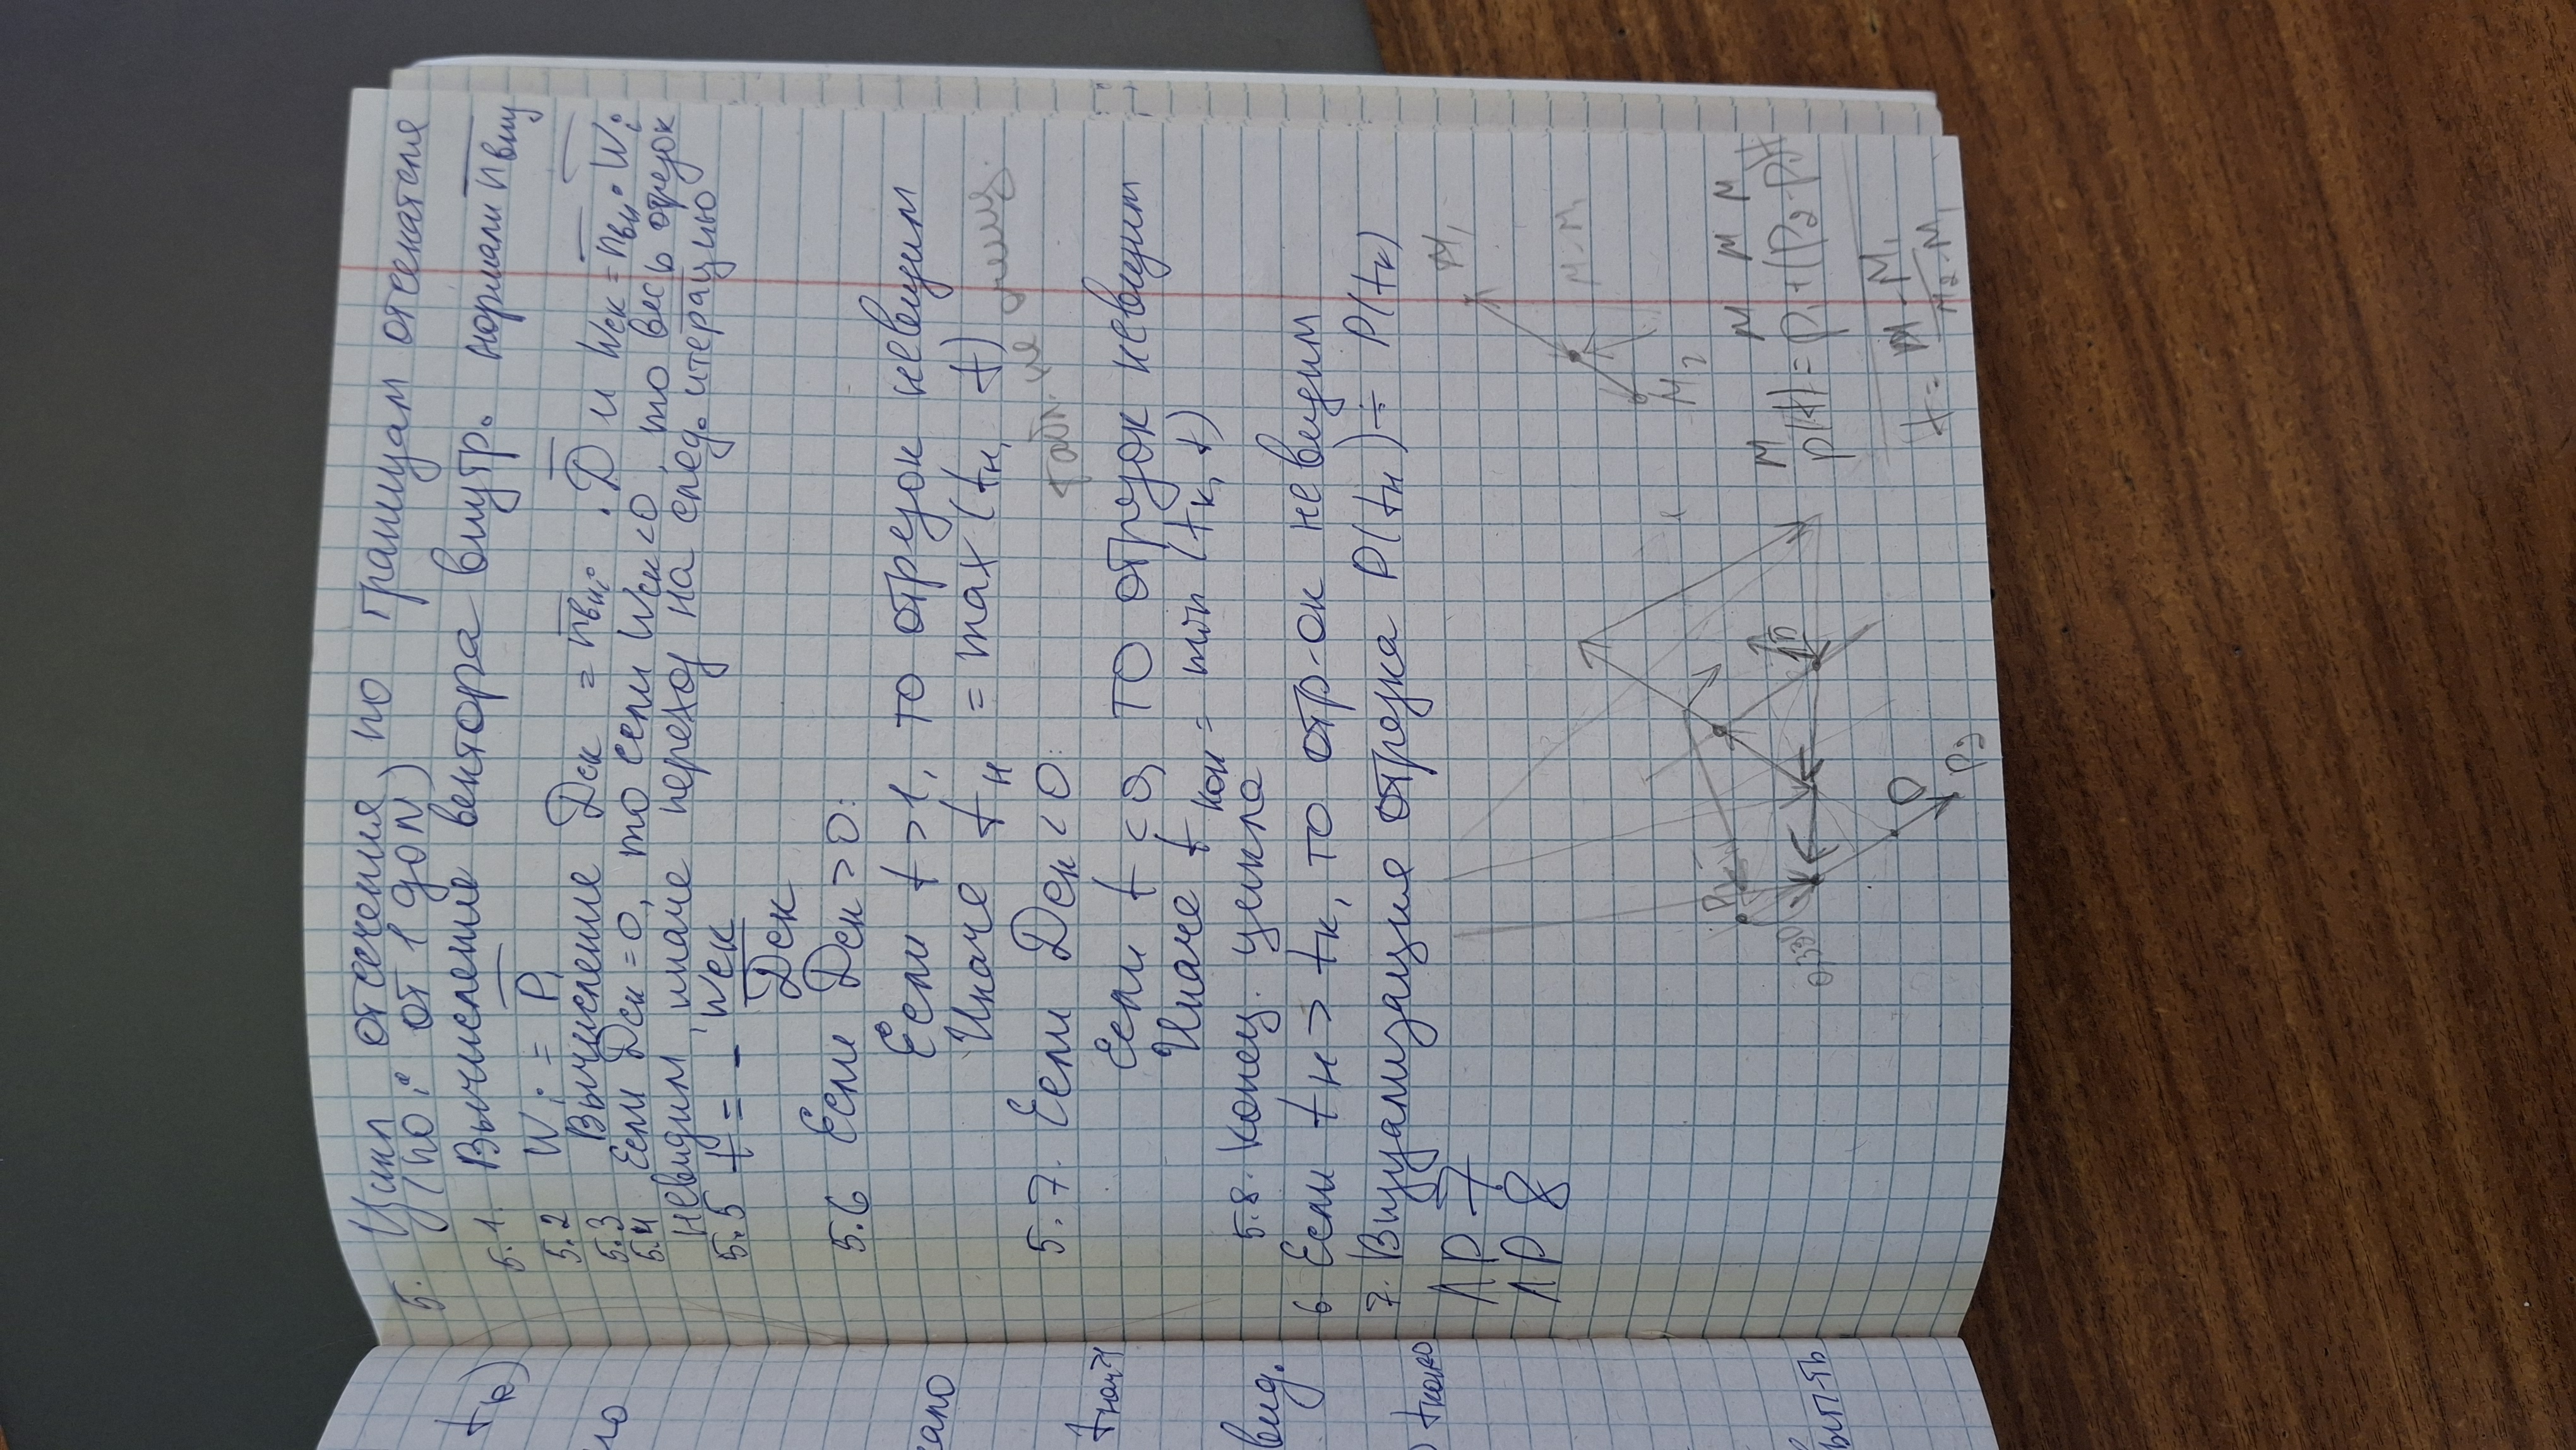 5. Цикл отсечения по границам отсекателя
(по i от 1 до N)
5.1. Вычисление вектора внутр. нормали n̅вну
5.2 Wi = P̅1
5.3 Вычисление Dск = n̅внi · D̅ и Wск = n̅внi · W̅i
5.4 Если Dск = 0, то если Wск < 0, то весь отрезок
невидим, иначе переход на след. итерацию
5.5 t = - Wск
Dск
5.6 Если Dск > 0:
Если t > 1, то отрезок невидим
Иначе tн = max (tн, t)
5.7. Если Dск < 0:
Если t < 0, то отрезок невидим
Иначе tкон = min (tк, t)
5.8. Конец цикла
6 Если tн > tк, то отр-ок невидим
7. Визуализация отрезка P(tн) ÷ P(tк)
ЛР 7
ЛР 8
M1
M-M1
M2
P1
n̅
0,330
D
P2
M M M M
p(t) = p1+(p2-p1)t
t = M-M1
M2-M1
tк)
tнач>1
вид.
tкон<0
вып-ть